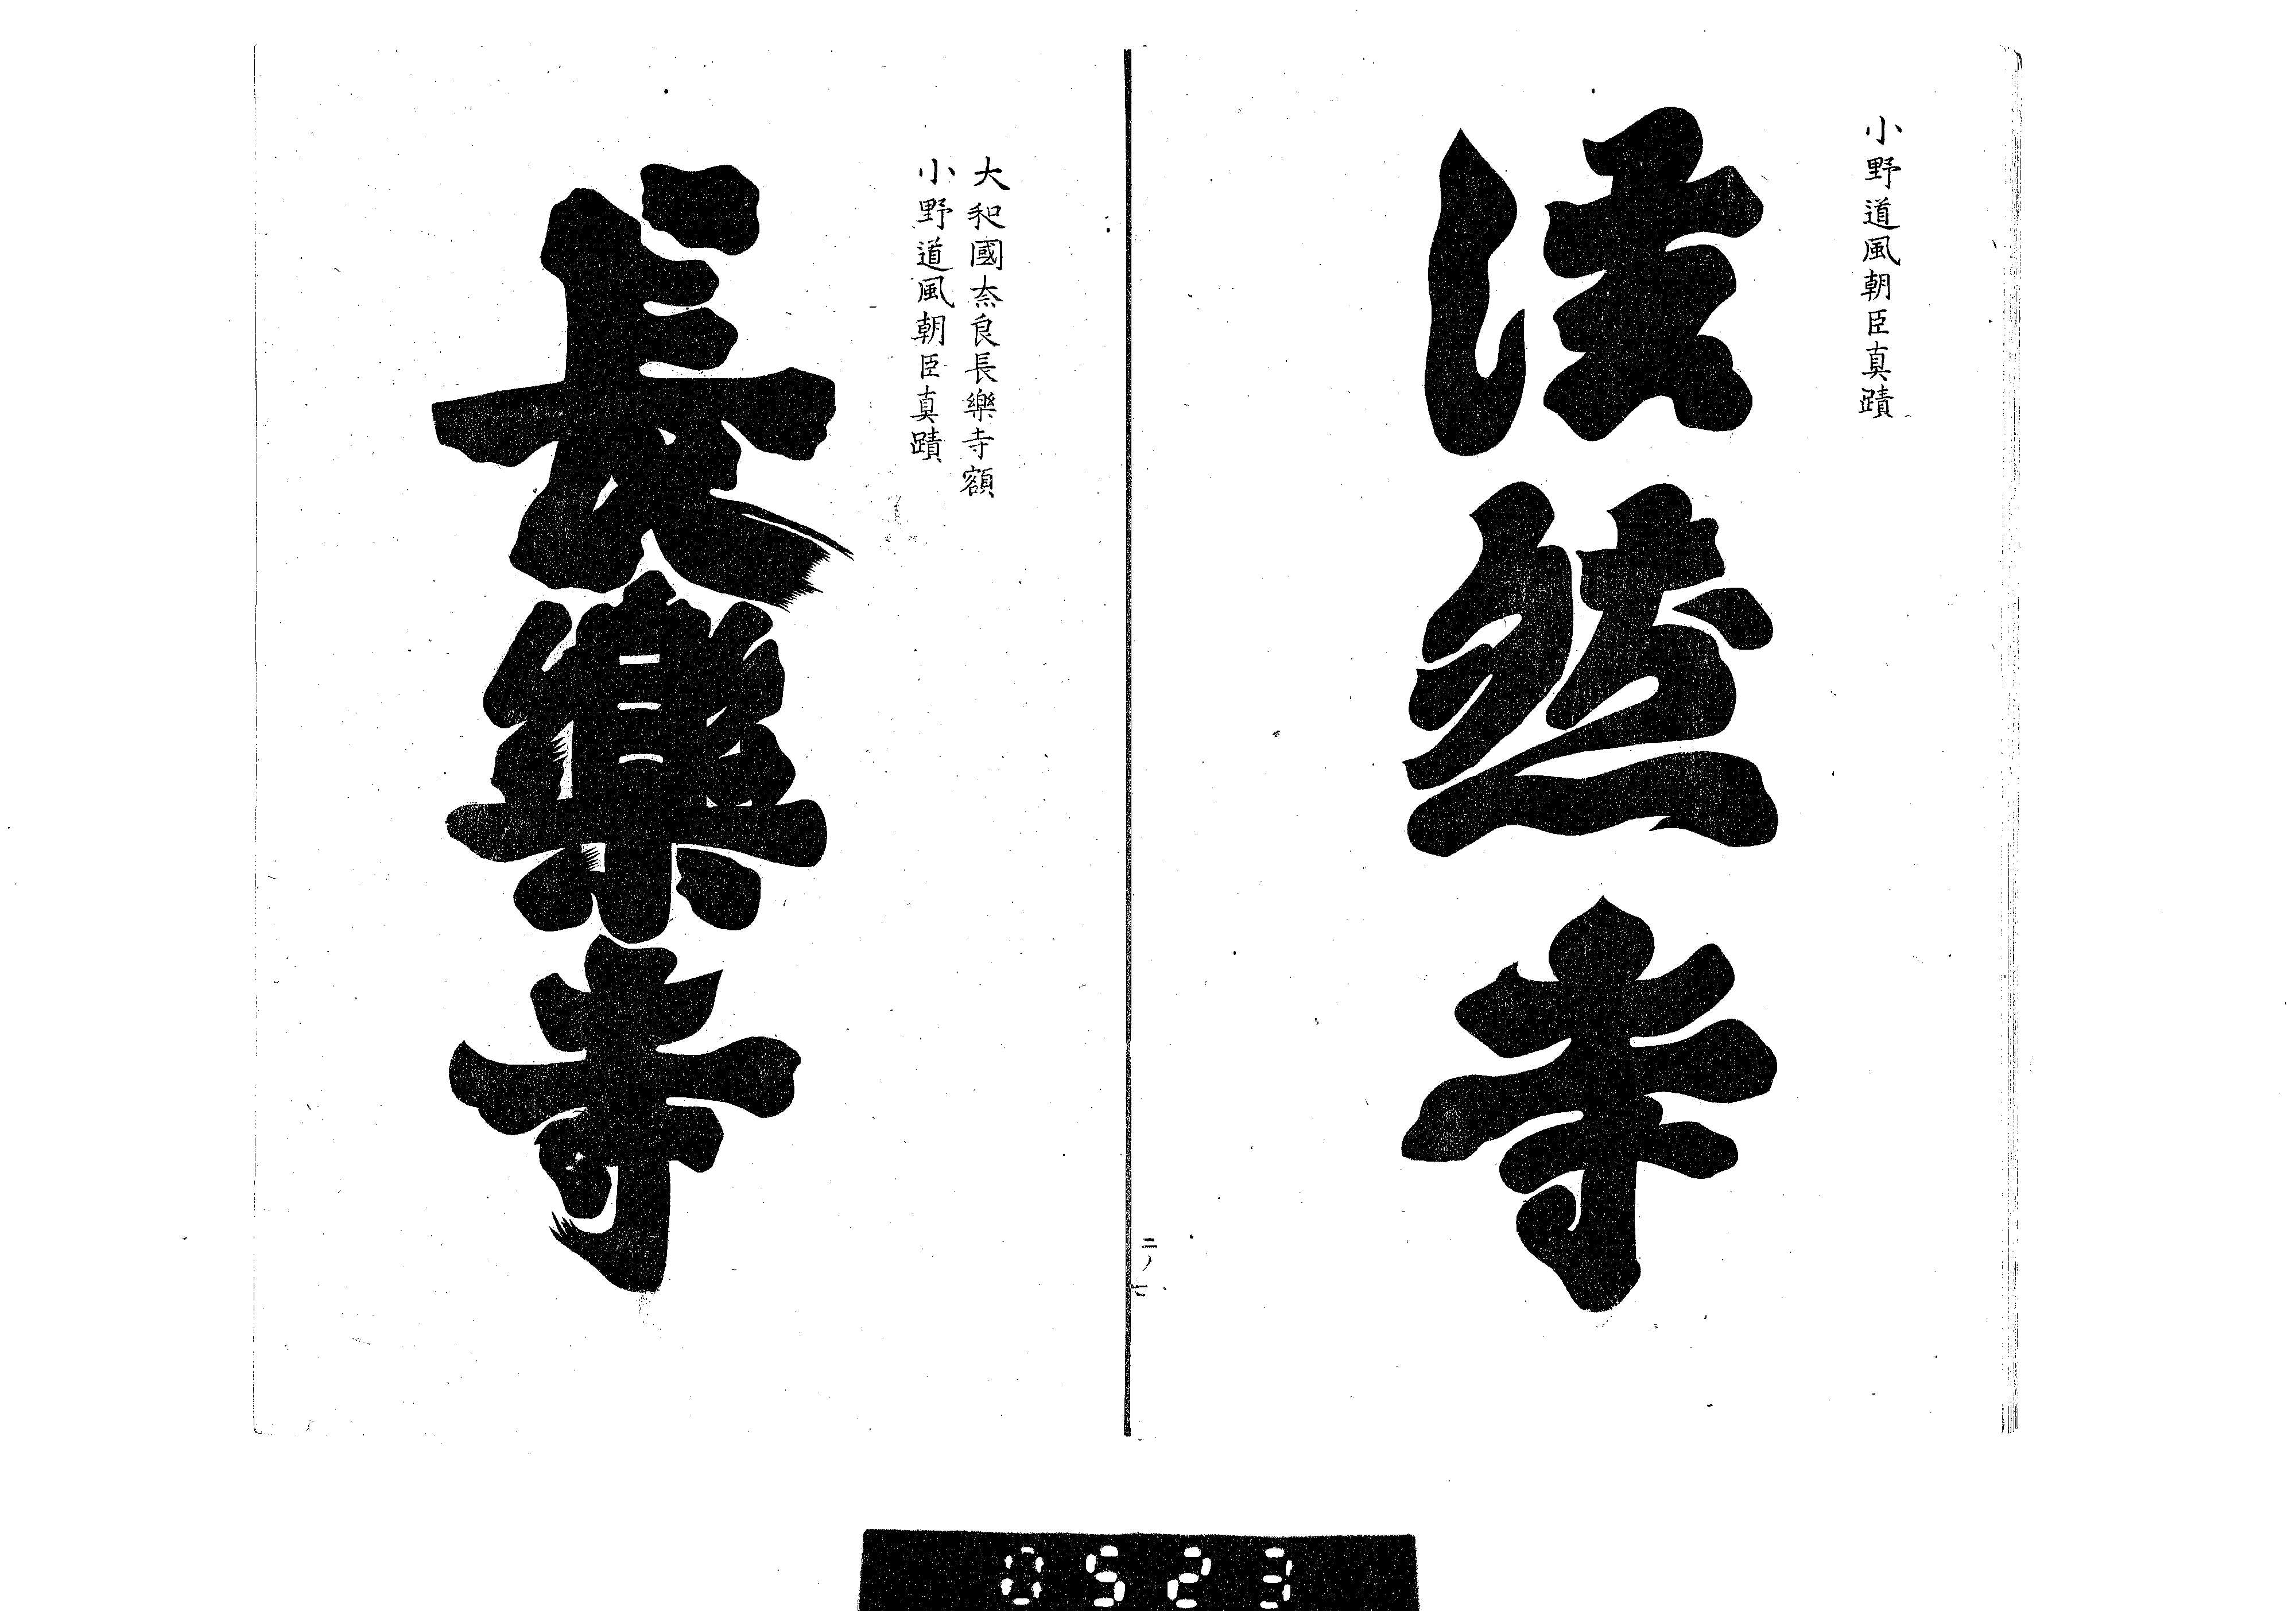 小野道風朝臣真蹟
法然寺
大和國奈良長樂寺額
小野道風朝臣真蹟
長樂寺
0523